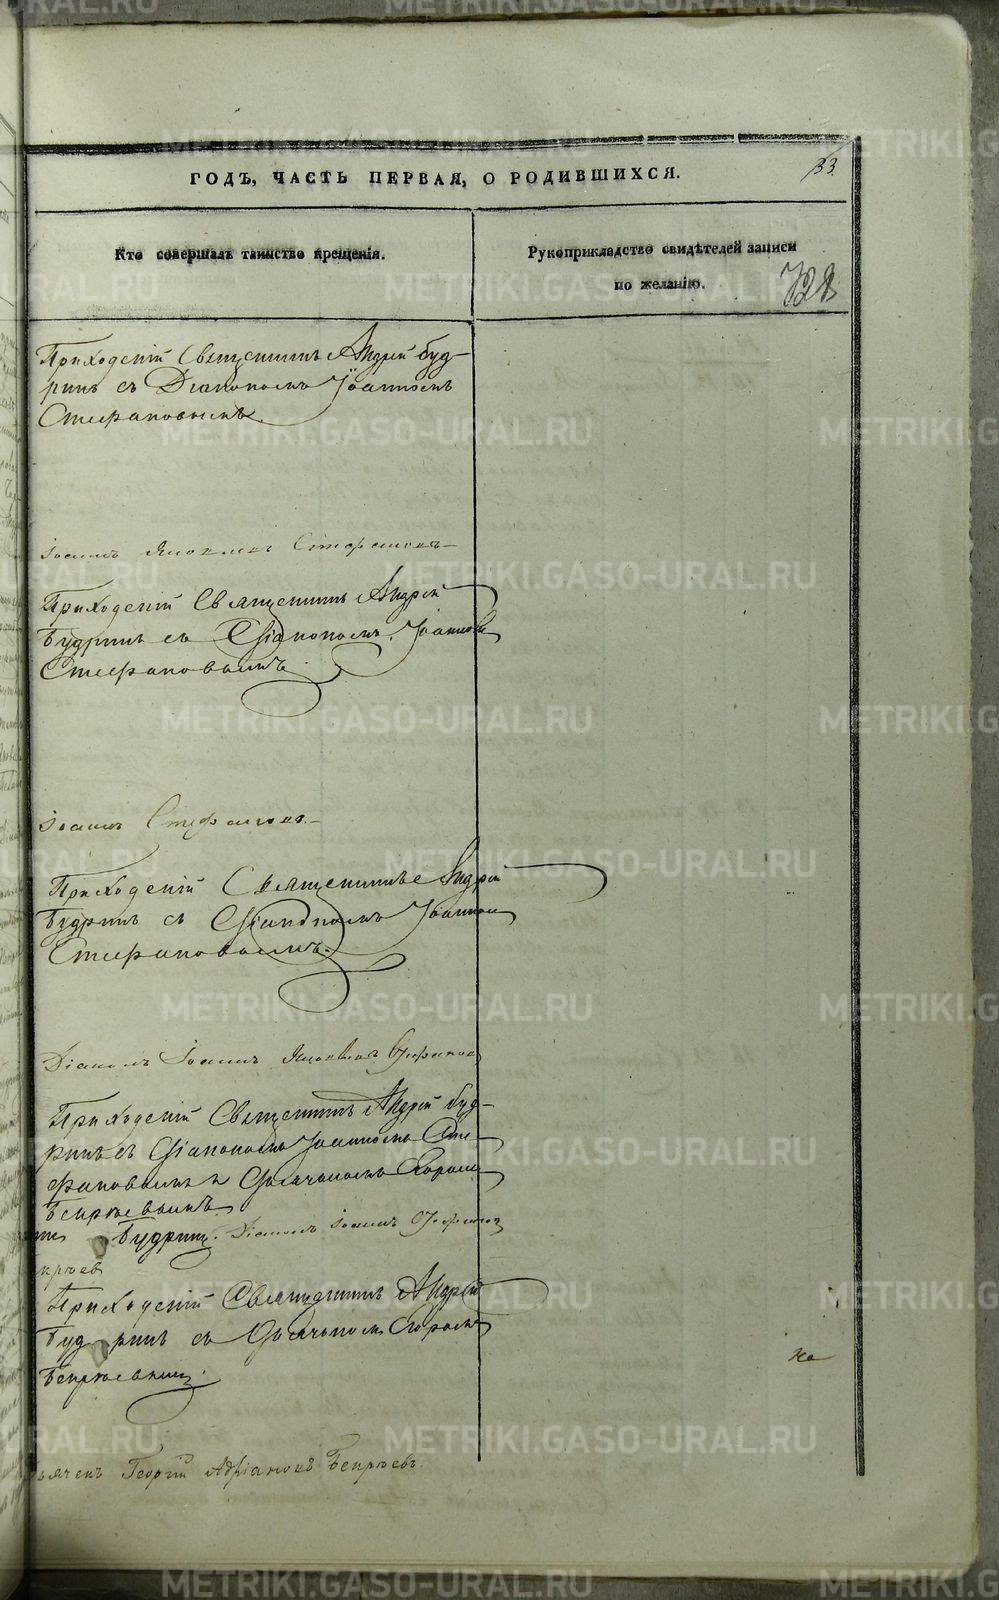 ГОДЪ, ЧАСТЬ ПЕРВАЯ, О РОДИВШИХСЯ.
33.
Кто совершалъ таинство крещенія.
Рукоприкладство свидѣтелей записи
по желанію.
728
Приходскій Священникъ Андрей Буд-
ринъ съ Діакономъ Іоанномъ
Стефановымъ.
Іоаннъ Стефановъ
Приходскій Священникъ Андрей
Будринъ съ Діакономъ Іоанномъ
Стефановымъ.
Іоаннъ Стефановъ.
Приходскій Священникъ Андрей
Будринъ съ Діакономъ Іоанномъ
Стефановымъ.
Діаконъ Іоаннъ Стефановъ
Приходскій Священникъ Андрей Буд-
ринъ съ Діакономъ Іоанномъ Сте-
фановымъ и Дьячкомъ
Бекрѣевымъ
Будринъ. Діаконъ Іоаннъ Стефановъ
крѣевъ
Приходскій Священникъ Андрей
Будринъ съ Дьячкомъ
Бекрѣевымъ.
ьячекъ Георгій Адріановъ Бекрѣевъ.
METRIKI.GASO-URAL.RU